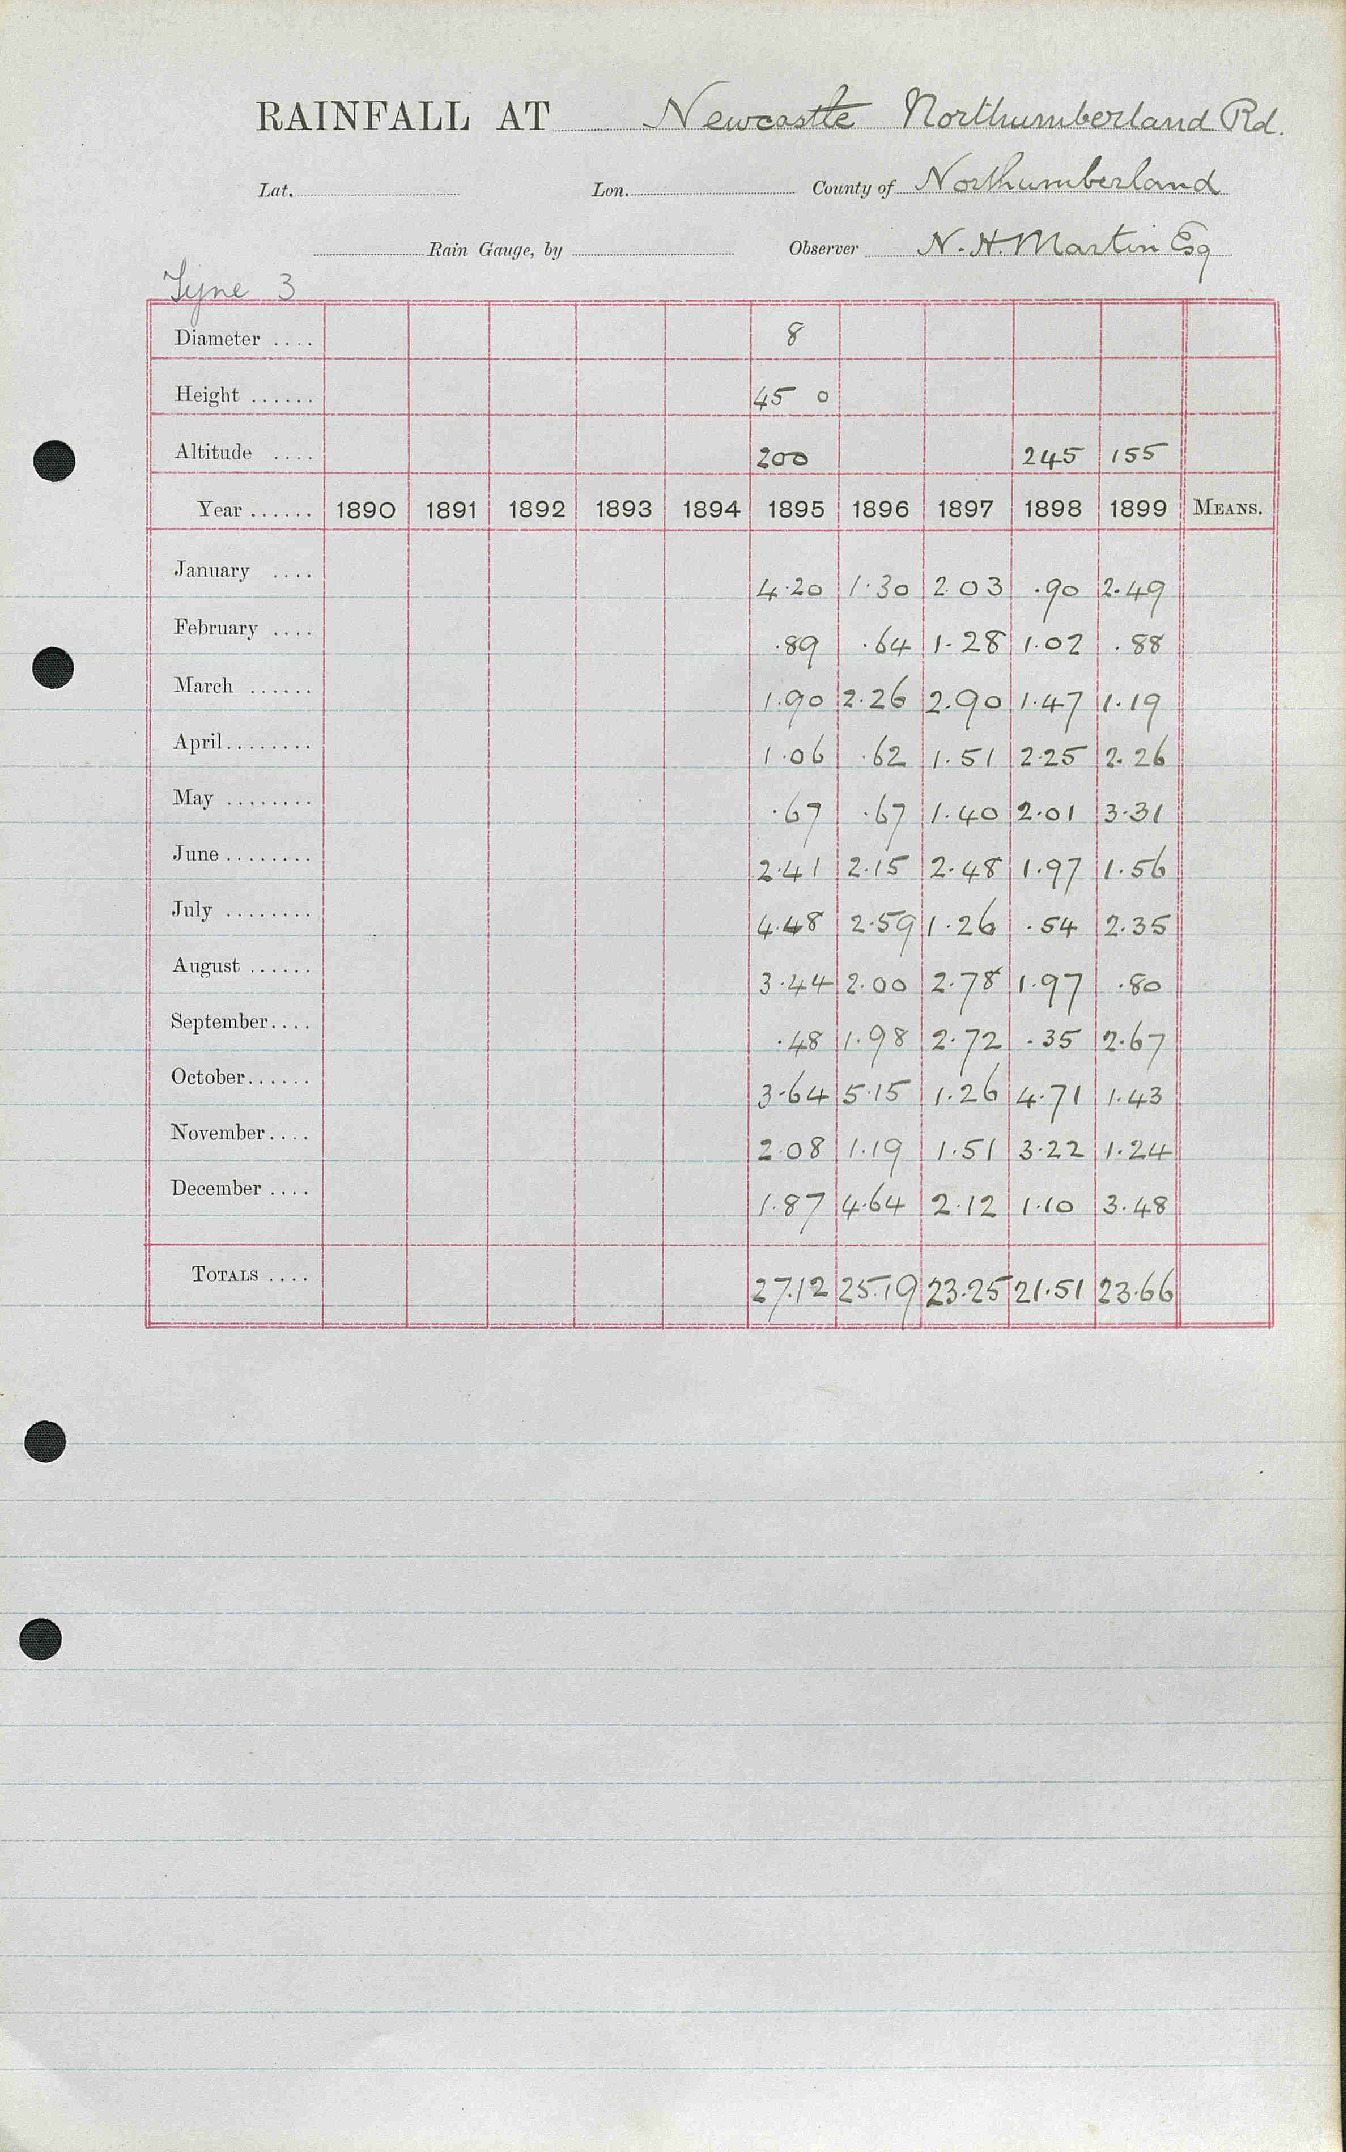 RAINFALL AT Newcastle Northumberland Rd.
Lat. Lon. County of Northumberland
Rain Gauge, by Observer N. H. Martin Esq
Tyne 3
Diameter .... 8
Height ...... 45 0
Altitude .... 200 245 155
Year ...... 1890 1891 1892 1893 1894 1895 1896 1897 1898 1899 MEANS.
January .... 4.20 1.30 2.03 .90 2.49
February .... .89 .64 1.28 1.02 .88
March ...... 1.90 2.26 2.90 1.47 1.19
April........ 1.06 .62 1.51 2.25 2.26
May ........ .67 .67 1.40 2.01 3.31
June........ 2.41 2.15 2.48 1.97 1.56
July ........ 4.48 2.59 1.26 .54 2.35
August ...... 3.44 2.00 2.78 1.97 .80
September.... .48 1.98 2.72 .35 2.67
October...... 3.64 5.15 1.26 4.71 1.43
November.... 2.08 1.19 1.51 3.22 1.24
December .... 1.87 4.64 2.12 1.10 3.48
TOTALS .... 27.12 25.19 23.25 21.51 23.66